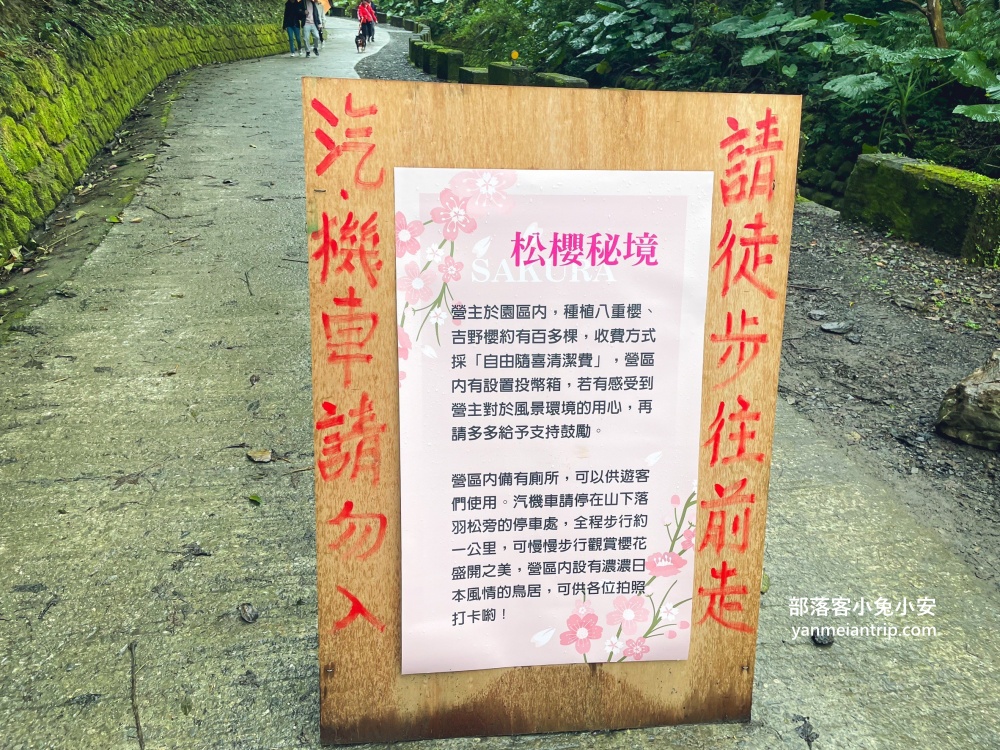 請徒步往前走
汽.機車請勿入
松櫻秘境
SAKURA
營主於園區內，種植八重櫻、
吉野櫻約有百多棵，收費方式
採「自由隨喜清潔費」，營區
內有設置投幣箱，若有感受到
營主對於風景環境的用心，再
請多多給予支持鼓勵。
營區內備有廁所，可以供遊客
們使用。汽機車請停在山下落
羽松旁的停車處，全程步行約
一公里，可慢慢步行觀賞櫻花
盛開之美，營區內設有濃濃日
本風情的鳥居，可供各位拍照
打卡喲！
部落客小兔小安
yanmeiantrip.com